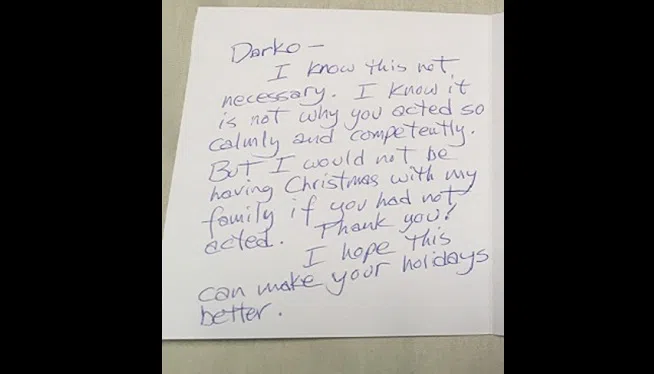 Darko —
I know this not
necessary. I know it
is not why you acted so
calmly and competently.
But I would not be
having Christmas with my
family if you had not
acted. Thank you!
I hope this
can make your holidays
better.